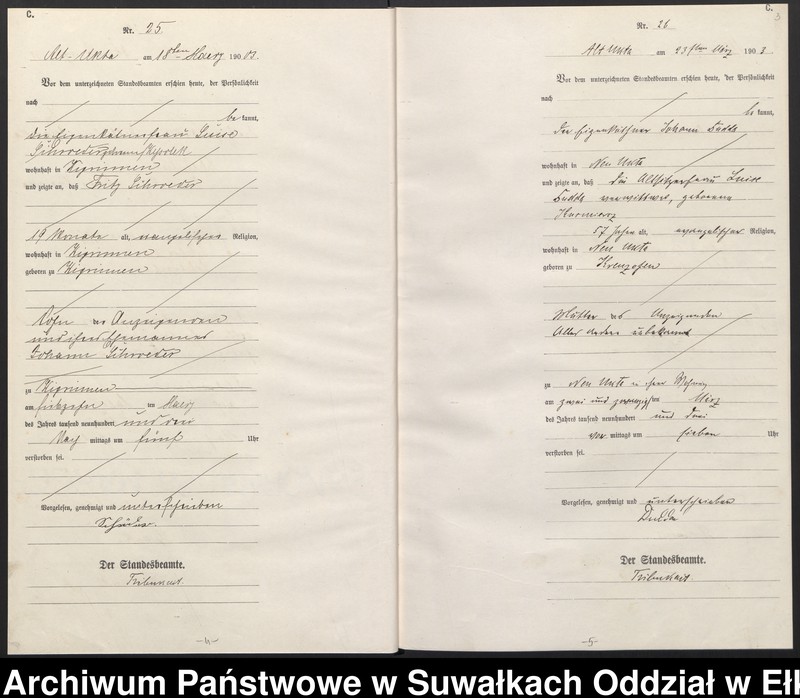 C.
Nr. 25
Alt-Ukta am 18ten Maerz 1903.
Vor dem unterzeichneten Standesbeamten erschien heute, der Persönlichkeit
nach
bekannt,
die Eigenkätnerfrau
wohnhaft in
und zeigte an, daß Fritz Schroeder
19 Monate alt, evangelischer Religion,
wohnhaft in
geboren zu
Sohn der Anzeigenden
und ihres Ehemannes
Johann Schroeder
zu
am im Maerz
des Jahres tausend neunhundert und drei
Nach mittags um fünf Uhr
verstorben sei.
Vorgelesen, genehmigt und unterschrieben
Der Standesbeamte.
-4-
C.
3
Nr. 26
Alt Ukta am 23ten März 1903
Vor dem unterzeichneten Standesbeamten erschien heute, der Persönlichkeit
nach
bekannt,
der Eigenkäthner Johann
wohnhaft in Neu Ukta
und zeigte an, daß die Altsitzerfrau Luise
verwittwet, geborene
57 Jahre alt, evangelischer Religion,
wohnhaft in Neu Ukta
geboren zu Kreuzofen
Mutter des Anzeigenden
Alles andere unbekannt
zu Neu Ukta in ihrer Wohnung
am zwei und zwanzigsten März
des Jahres tausend neunhundert und drei
vor mittags um sieben Uhr
verstorben sei.
Vorgelesen, genehmigt und unterschrieben
Der Standesbeamte.
-5-
Archiwum Państwowe w Suwałkach Oddział w Eł